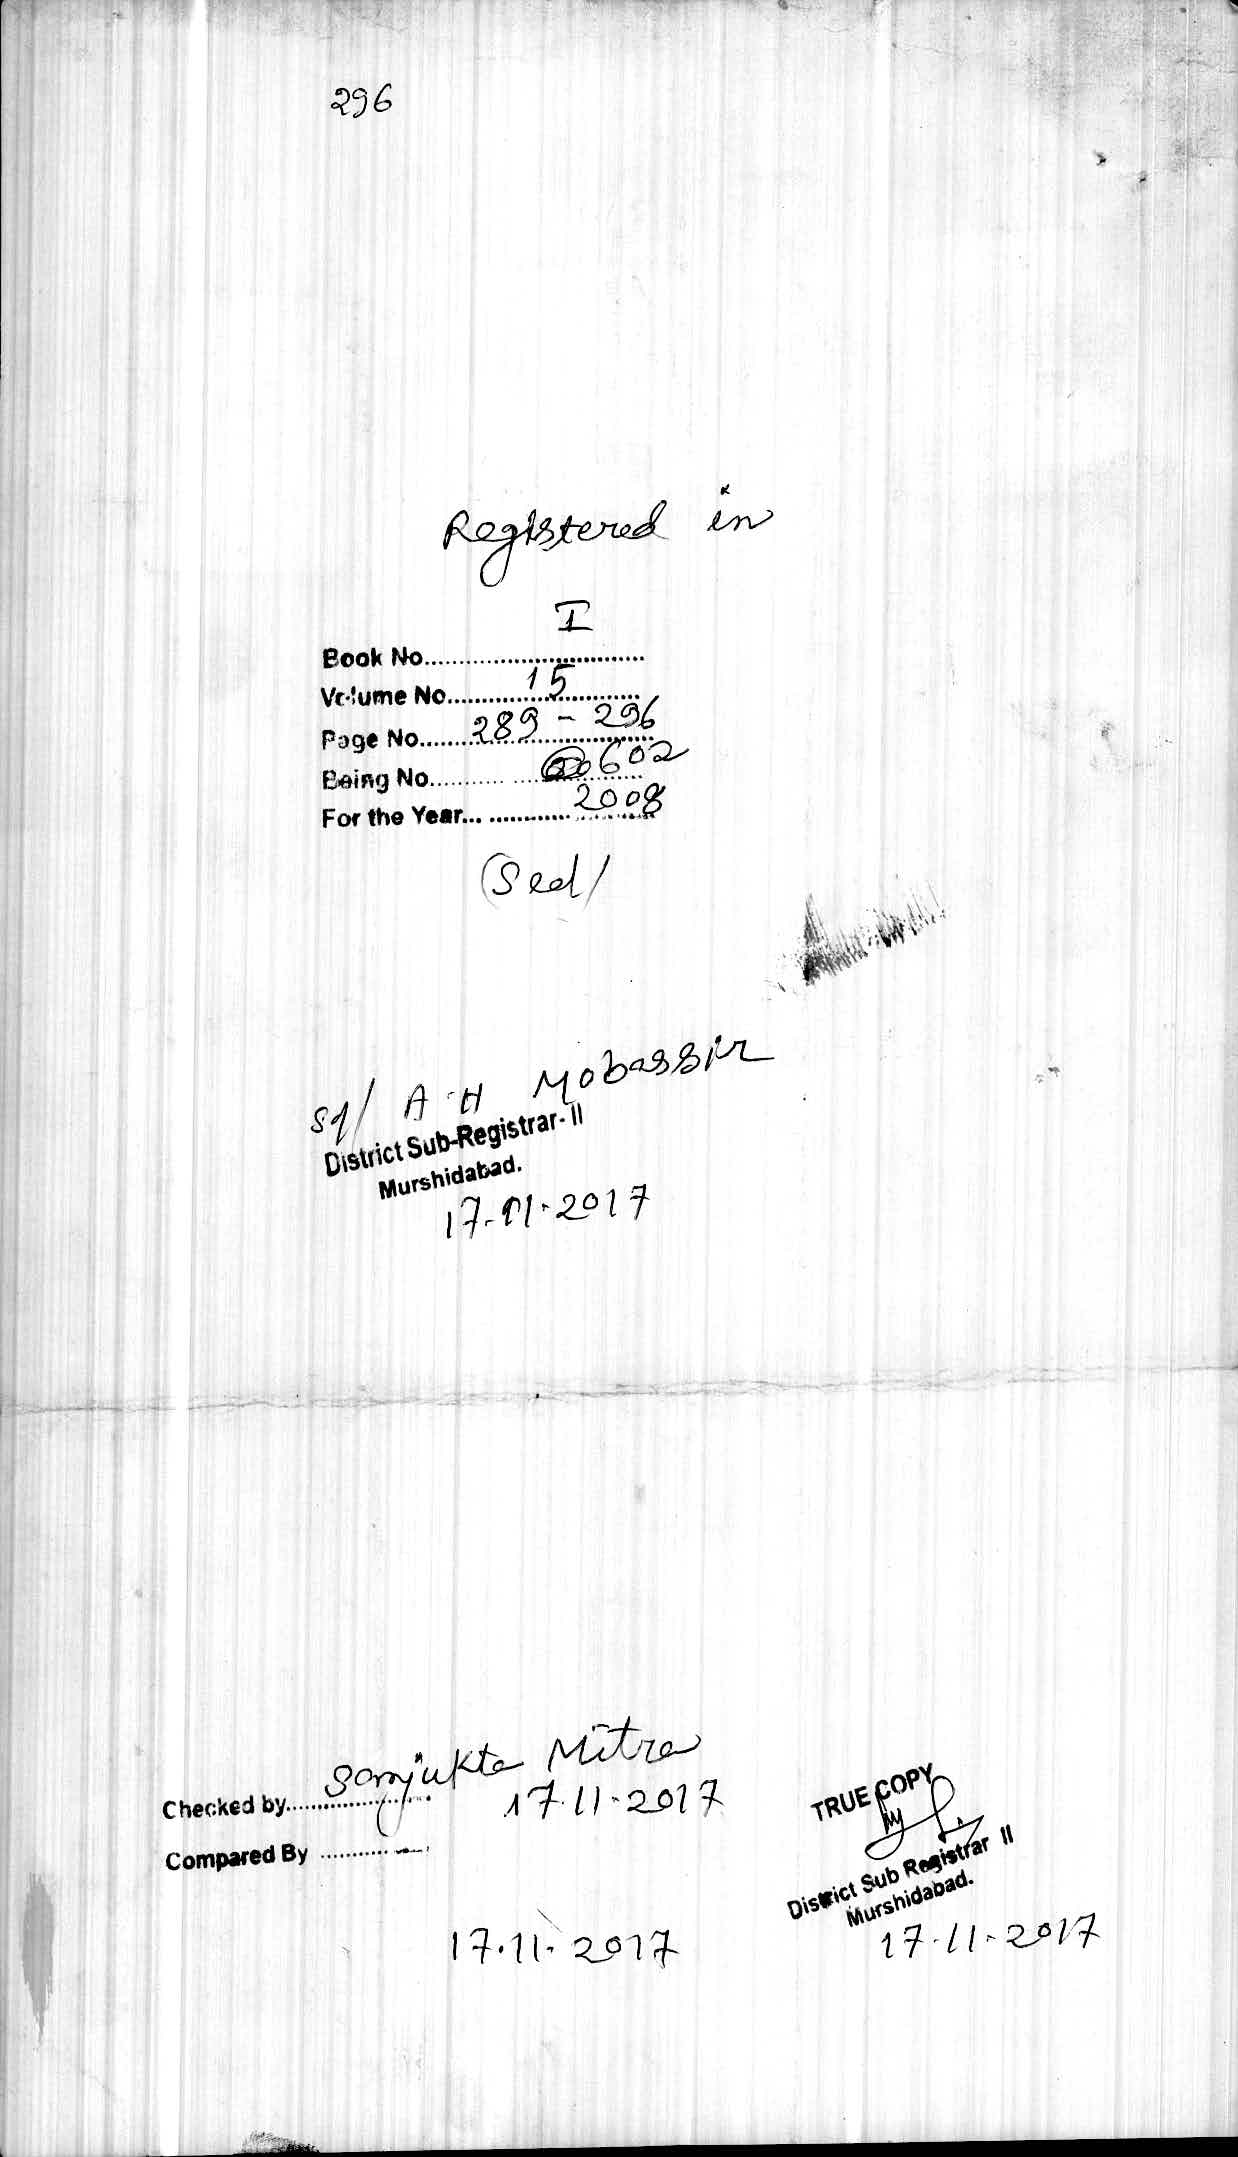 296
Registered in
I
Book No..................................
15
Volume No..............................
289 - 296
Page No..................................
602
Being No...............................
2008
For the Year..........................
(Sed/
Sd/ A. H Mobassir
District Sub-Registrar- II
Murshidabad.
17-11-2017
Sanjukta Mitra
Checked by.......................
17-11-2017
Compared By .................
17.11.2017
TRUE COPY
District Sub Registrar II
Murshidabad.
17-11-2017